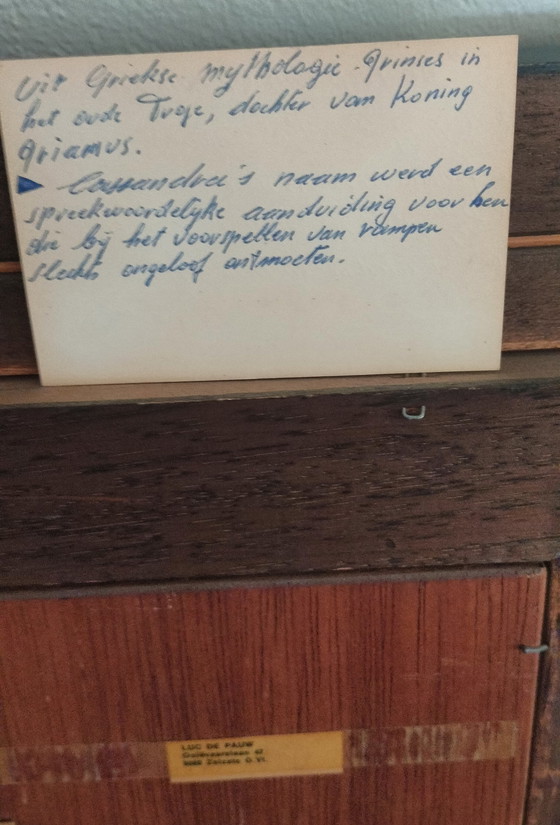 Uit Griekse mythologie. Prinses in
het oude Troje, dochter van Koning
Priamus.
Cassandra's naam werd een
spreekwoordelijke aanduiding voor hen
die bij het voorspellen van rampen
slechts ongeloof ontmoeten.
LUC DE PAUW
9060 Zelzate O.Vl.